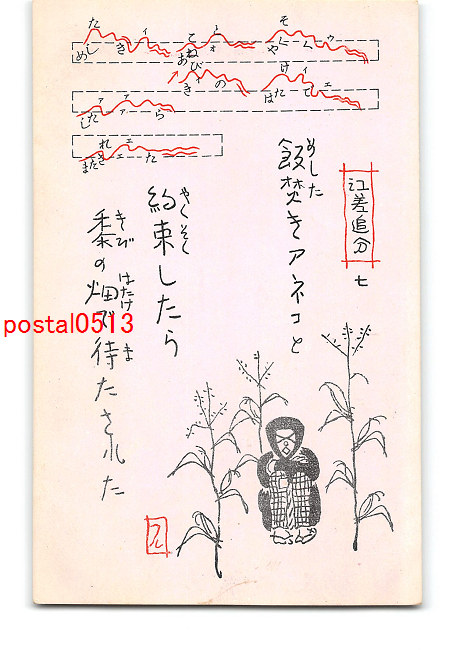 めしたきィ あねとこォ やくそくゥ
しァたァら きびィの はたけィでェ
またされェェた
江差追分 七
めした
飯焚きアネコと
やくそく
約束したら
きび はたけ ま
黍の畑で待たされた
postal0513